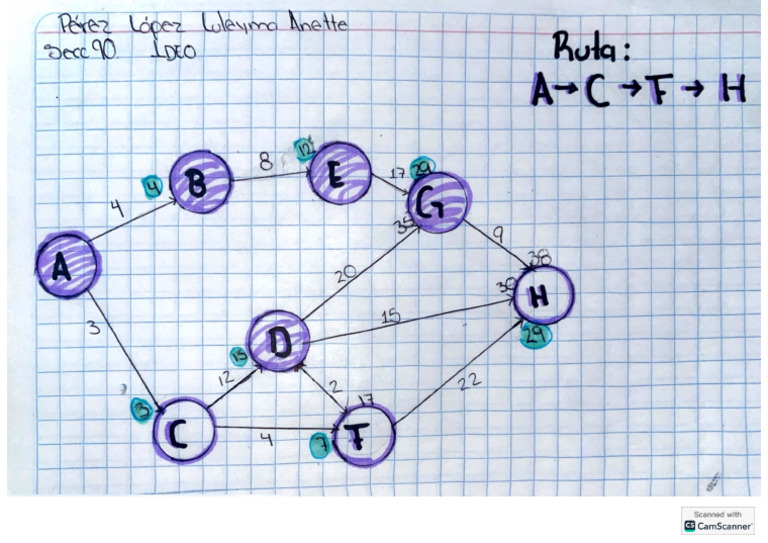 Pérez López Zuleyma Anette
Secc 90. IDEO
Ruta:
A→C→F→H
4 B 8 12 E 17 29 G
4
A
35 9
20 38
3 30 H
D 15
15 29
12 2 22
3 17
C 4 7 F
Scanned with
CS CamScanner